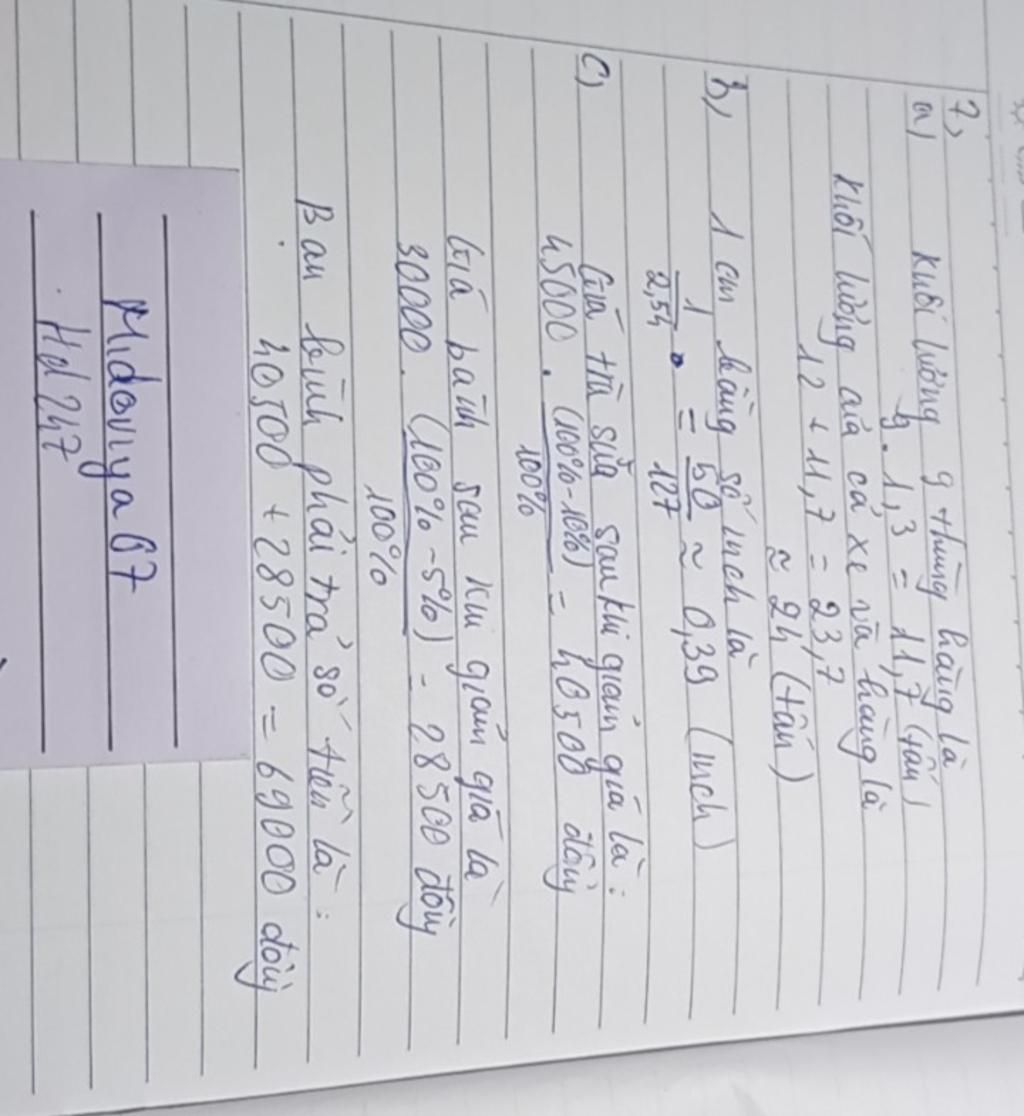 7,
a) Khối lượng 9 thùng hàng là
9 . 1,3 = 11,7 (tấn)
Khối lượng của cả xe và hàng là
12 + 11,7 = 23,7
≈ 24 (tấn)
b, 1 cm bằng số inch là
1/2,54 = 50/127 ≈ 0,39 (inch)
c) Giá trà sữa sau khi giảm giá là :
45000 . (100%-10%)/100% = 40500 đồng
Giá bánh sau khi giảm giá là
30000 . (100%-5%)/100% = 28500 đồng
Bạn Bình phải trả số tiền là :
40500 + 28500 = 69000 đồng
Midoriya67
Hd247